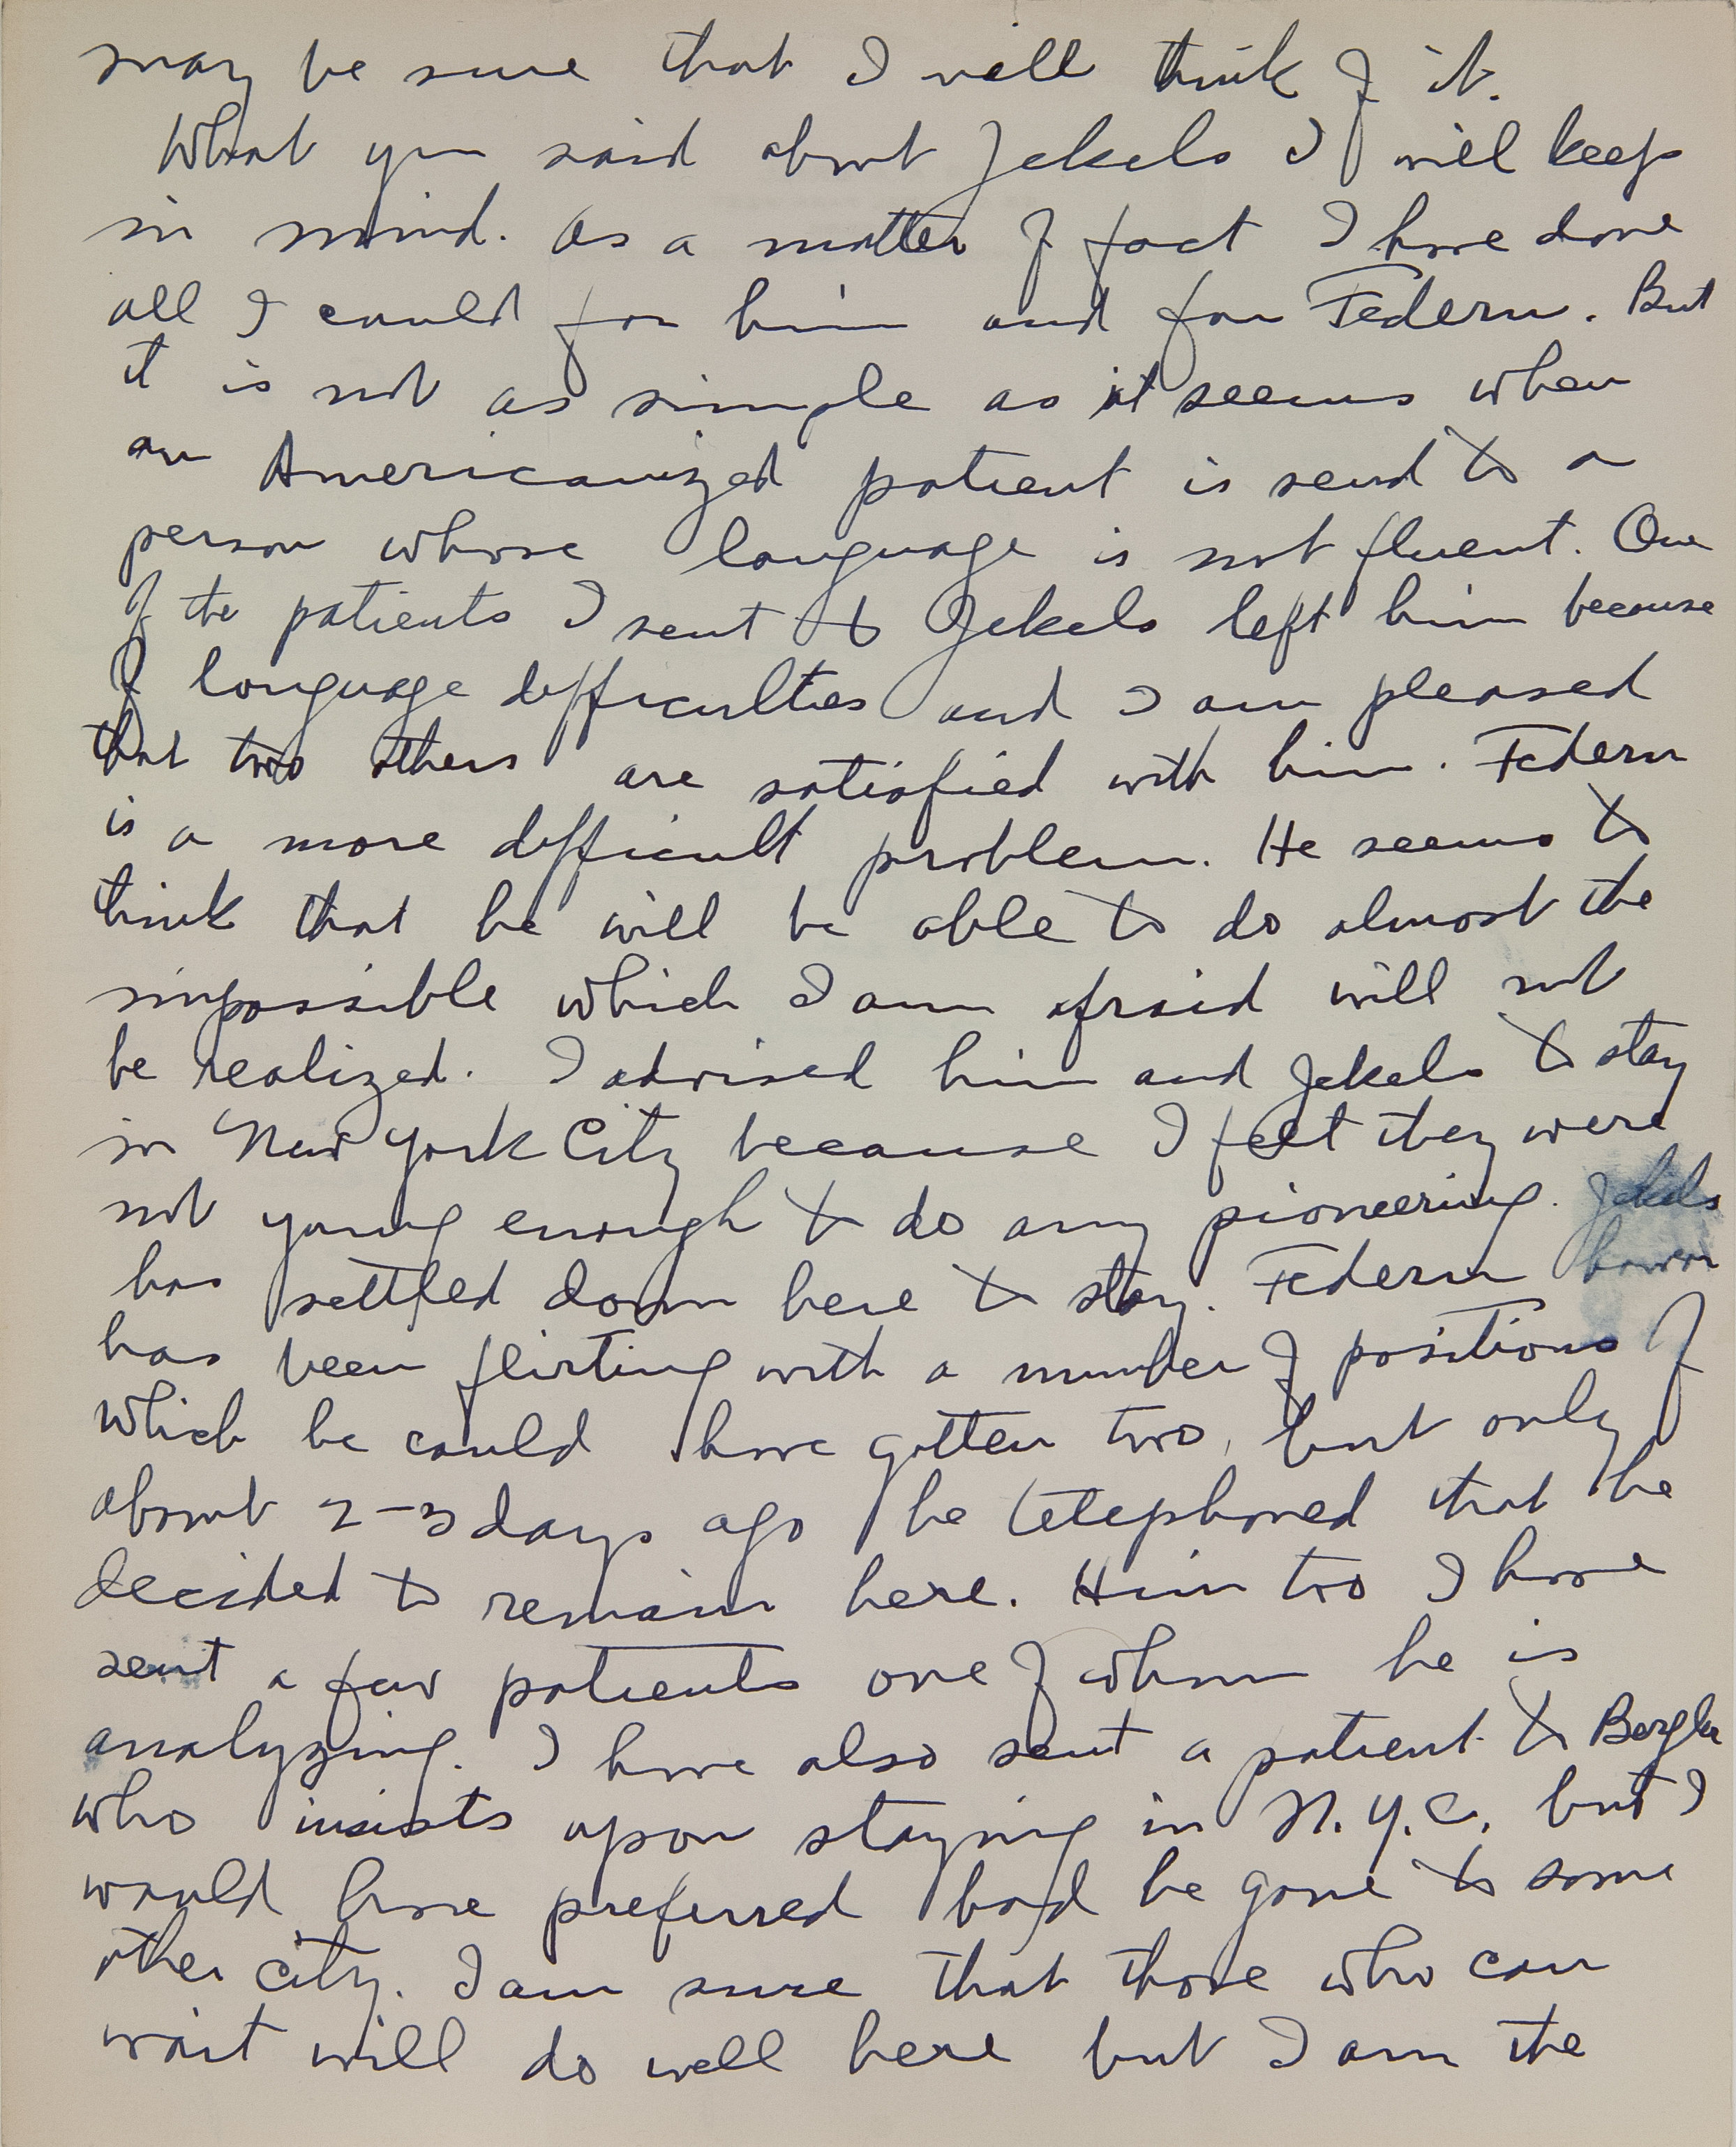 may be sure that I will think of it.
What you said about Jekels I will keep
in mind. As a matter of fact I have done
all I could for him and for Federn. But
it is not as simple as it seems when
an Americanized patient is send to a
person whose language is not fluent. One
of the patients I sent to Jekels left him because
of language difficulties and I am pleased
that two others are satisfied with him. Federn
is a more difficult problem. He seems to
think that he will be able to do almost the
impossible which I am afraid will not
be realized. I advised him and Jekels to stay
in New York City because I felt they were
not young enough to do any pioneering. Jekels
has settled down here to stay. Federn however
has been flirting with a number of positions of
which he could have gotten two, but only
about 2-3 days ago he telephoned that he
decided to remain here. Him too I have
sent a few patients one of whom he is
analyzing. I have also sent a patient to Bergler
who insists upon staying in N.Y.C. but I
would have preferred had he gone to some
other city. I am sure that those who can
wait will do well here but I am the